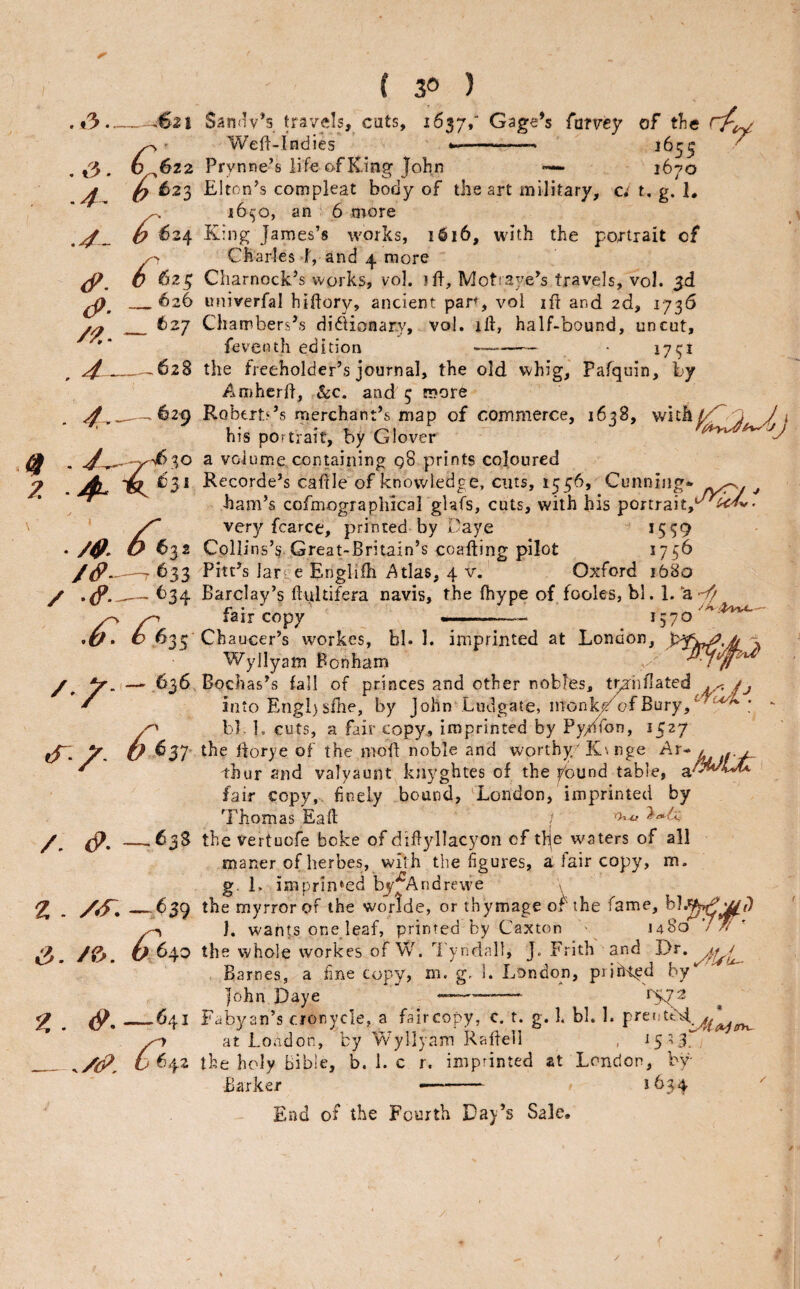 ( 30 )
.3. — 621 Sandy's travels, cuts, 1637, Gage's ſurvey of the
Weſt-Indies —— 1655
.3. 6 622 Prynne's life of King John — 1670
.4. 6 623 Elton's compleat body of the art military, c. t. g. l.
1650, an 6 more
.4. 6 624 King James's works, 1616, with the portrait of
Charles I, and 4 more
625 Charnock's works, vol. 1ſt, Motraye's travels, vol. 3d
— 626 univerſal hiſtory, ancient part, vol 1ſt and 2d, 1736
— 627 Chambers's dictionary, vol. 1ſt, half-bound, uncut,
ſeventh edition —— 1751
.4 — 628 the freeholder's journal, the old whig, Paſquin, by
Amherſt, &c. and 5 more
.4. — 629 Roberts's merchant's map of commerce, 1638, with
his portrait, by Glover
630 a volume containing 98 prints coloured
631 Recorde's caſtle of knowledge, cuts, 1556, Cunning-
ham's coſmographical glaſs, cuts, with his portrait,
very ſcarce, printed by Daye 1559
.10. 6 632 Collins's Great-Britain's coaſting pilot 1756
633 Pitt's large Engliſh Atlas, 4 v. Oxford 1680
634 Barclay's ſtultifera navis, the ſhype of fooles, bl. l. a
fair copy —— 1570
.6. 6 635 Chaucer's workes, bl. l. imprinted at London, by
Wyllyam Bonham
/. 7. — 636 Bochas's fall of princes and other nobles, tranſlated
into Englyſhe, by John Ludgate, monke of Bury,
bl. l. cuts, a fair copy, imprinted by Pynſon, 1527
5. 7. 6 637 the ſtorye of the moſt noble and worthy Kynge Ar-
thur and valyaunt knyghtes of the round table, a
fair copy, finely bound, London, imprinted by
Thomas Eaſt
— 638 the vertuoſe boke of diſtyllacyon of the waters of all
maner of herbes, with the figures, a fair copy, m.
g. l. imprinted by Andrewe
2. 15. — 639 the myrror of the worlde, or thymage of the ſame, bl.
l. wants one leaf, printed by Caxton 1480
3. 10. 6 640 the whole workes of W. Tyndall, J. Frith and Dr.
Barnes, a fine copy, m. g. l. London, printed by
John Daye —— 1572
— 641 Fabyan's cronycle, a fair copy, c. t. g. l. bl. l. prented
at London, by Wyllyam Raſtell , 1533.
642 the holy bible, b. l. c r. imprinted at London, by
Barker —— 1634
End of the Fourth Day's Sale.